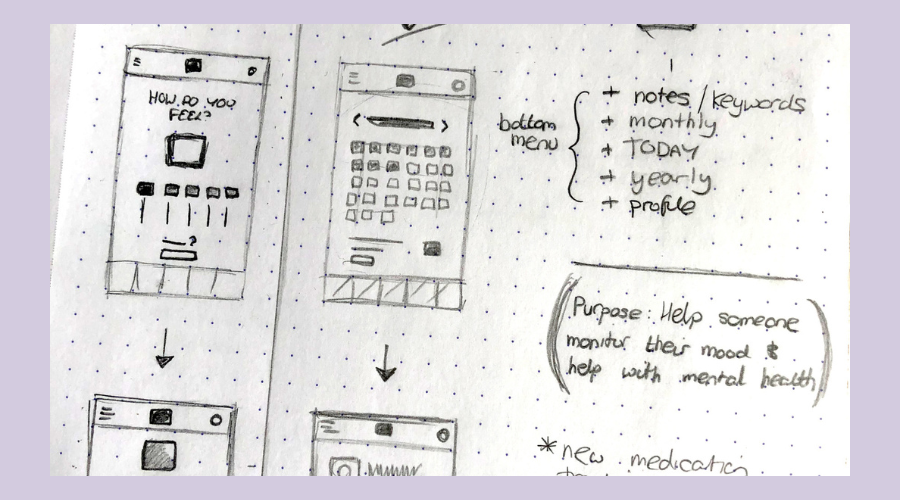 HOW DO YOU
FEEL?
?
bottom
menu
+ notes/keywords
+ monthly
+ TODAY
+ yearly
+ profile
Purpose: Help someone
monitor their mood &
help with mental health
* new medication